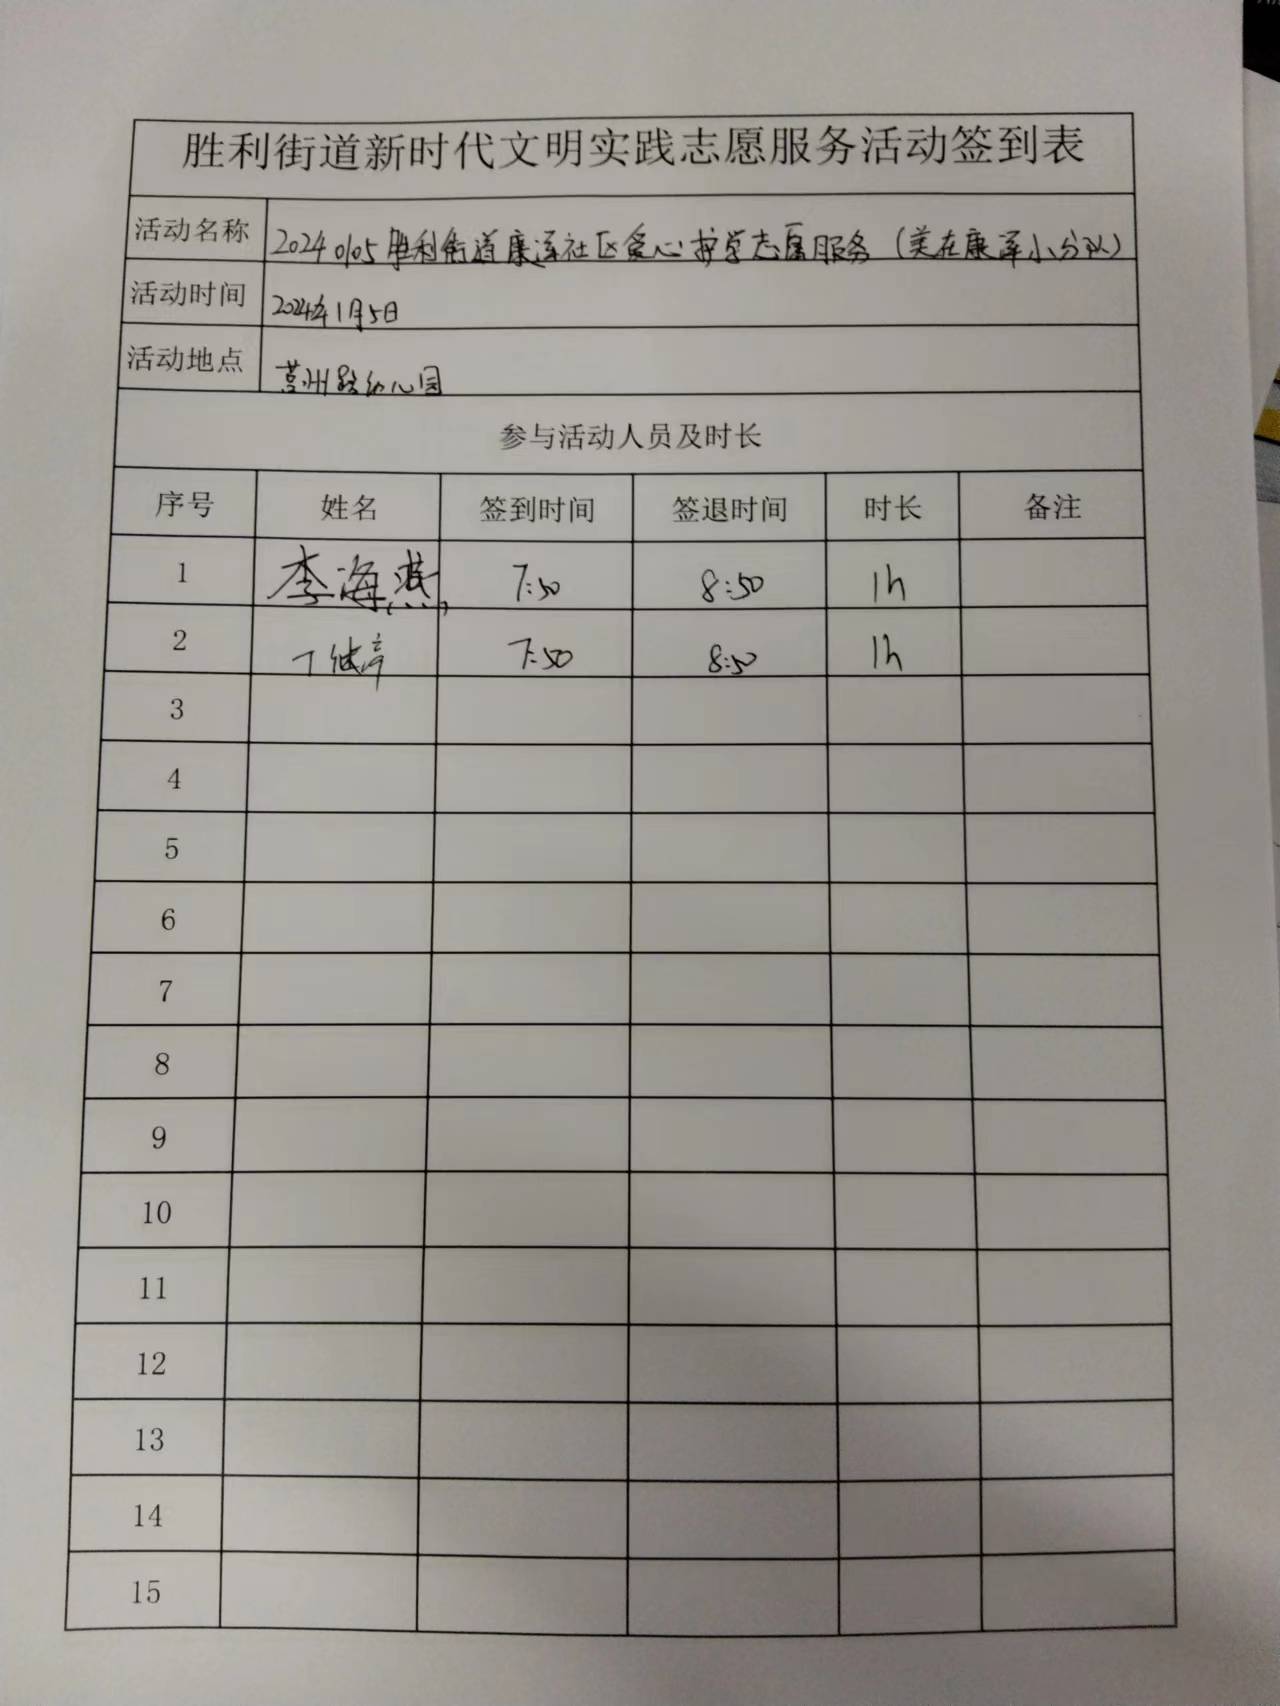 胜利街道新时代文明实践志愿服务活动签到表
活动名称 20240105胜利街道康泽社区爱心护学志愿服务（美在康泽小分队）
活动时间 2024年1月5日
活动地点 莒州路幼儿园
参与活动人员及时长
序号 姓名 签到时间 签退时间 时长 备注
1 李海燕 7:50 8:50 1h
2 丁继亭 7:50 8:50 1h
3
4
5
6
7
8
9
10
11
12
13
14
15